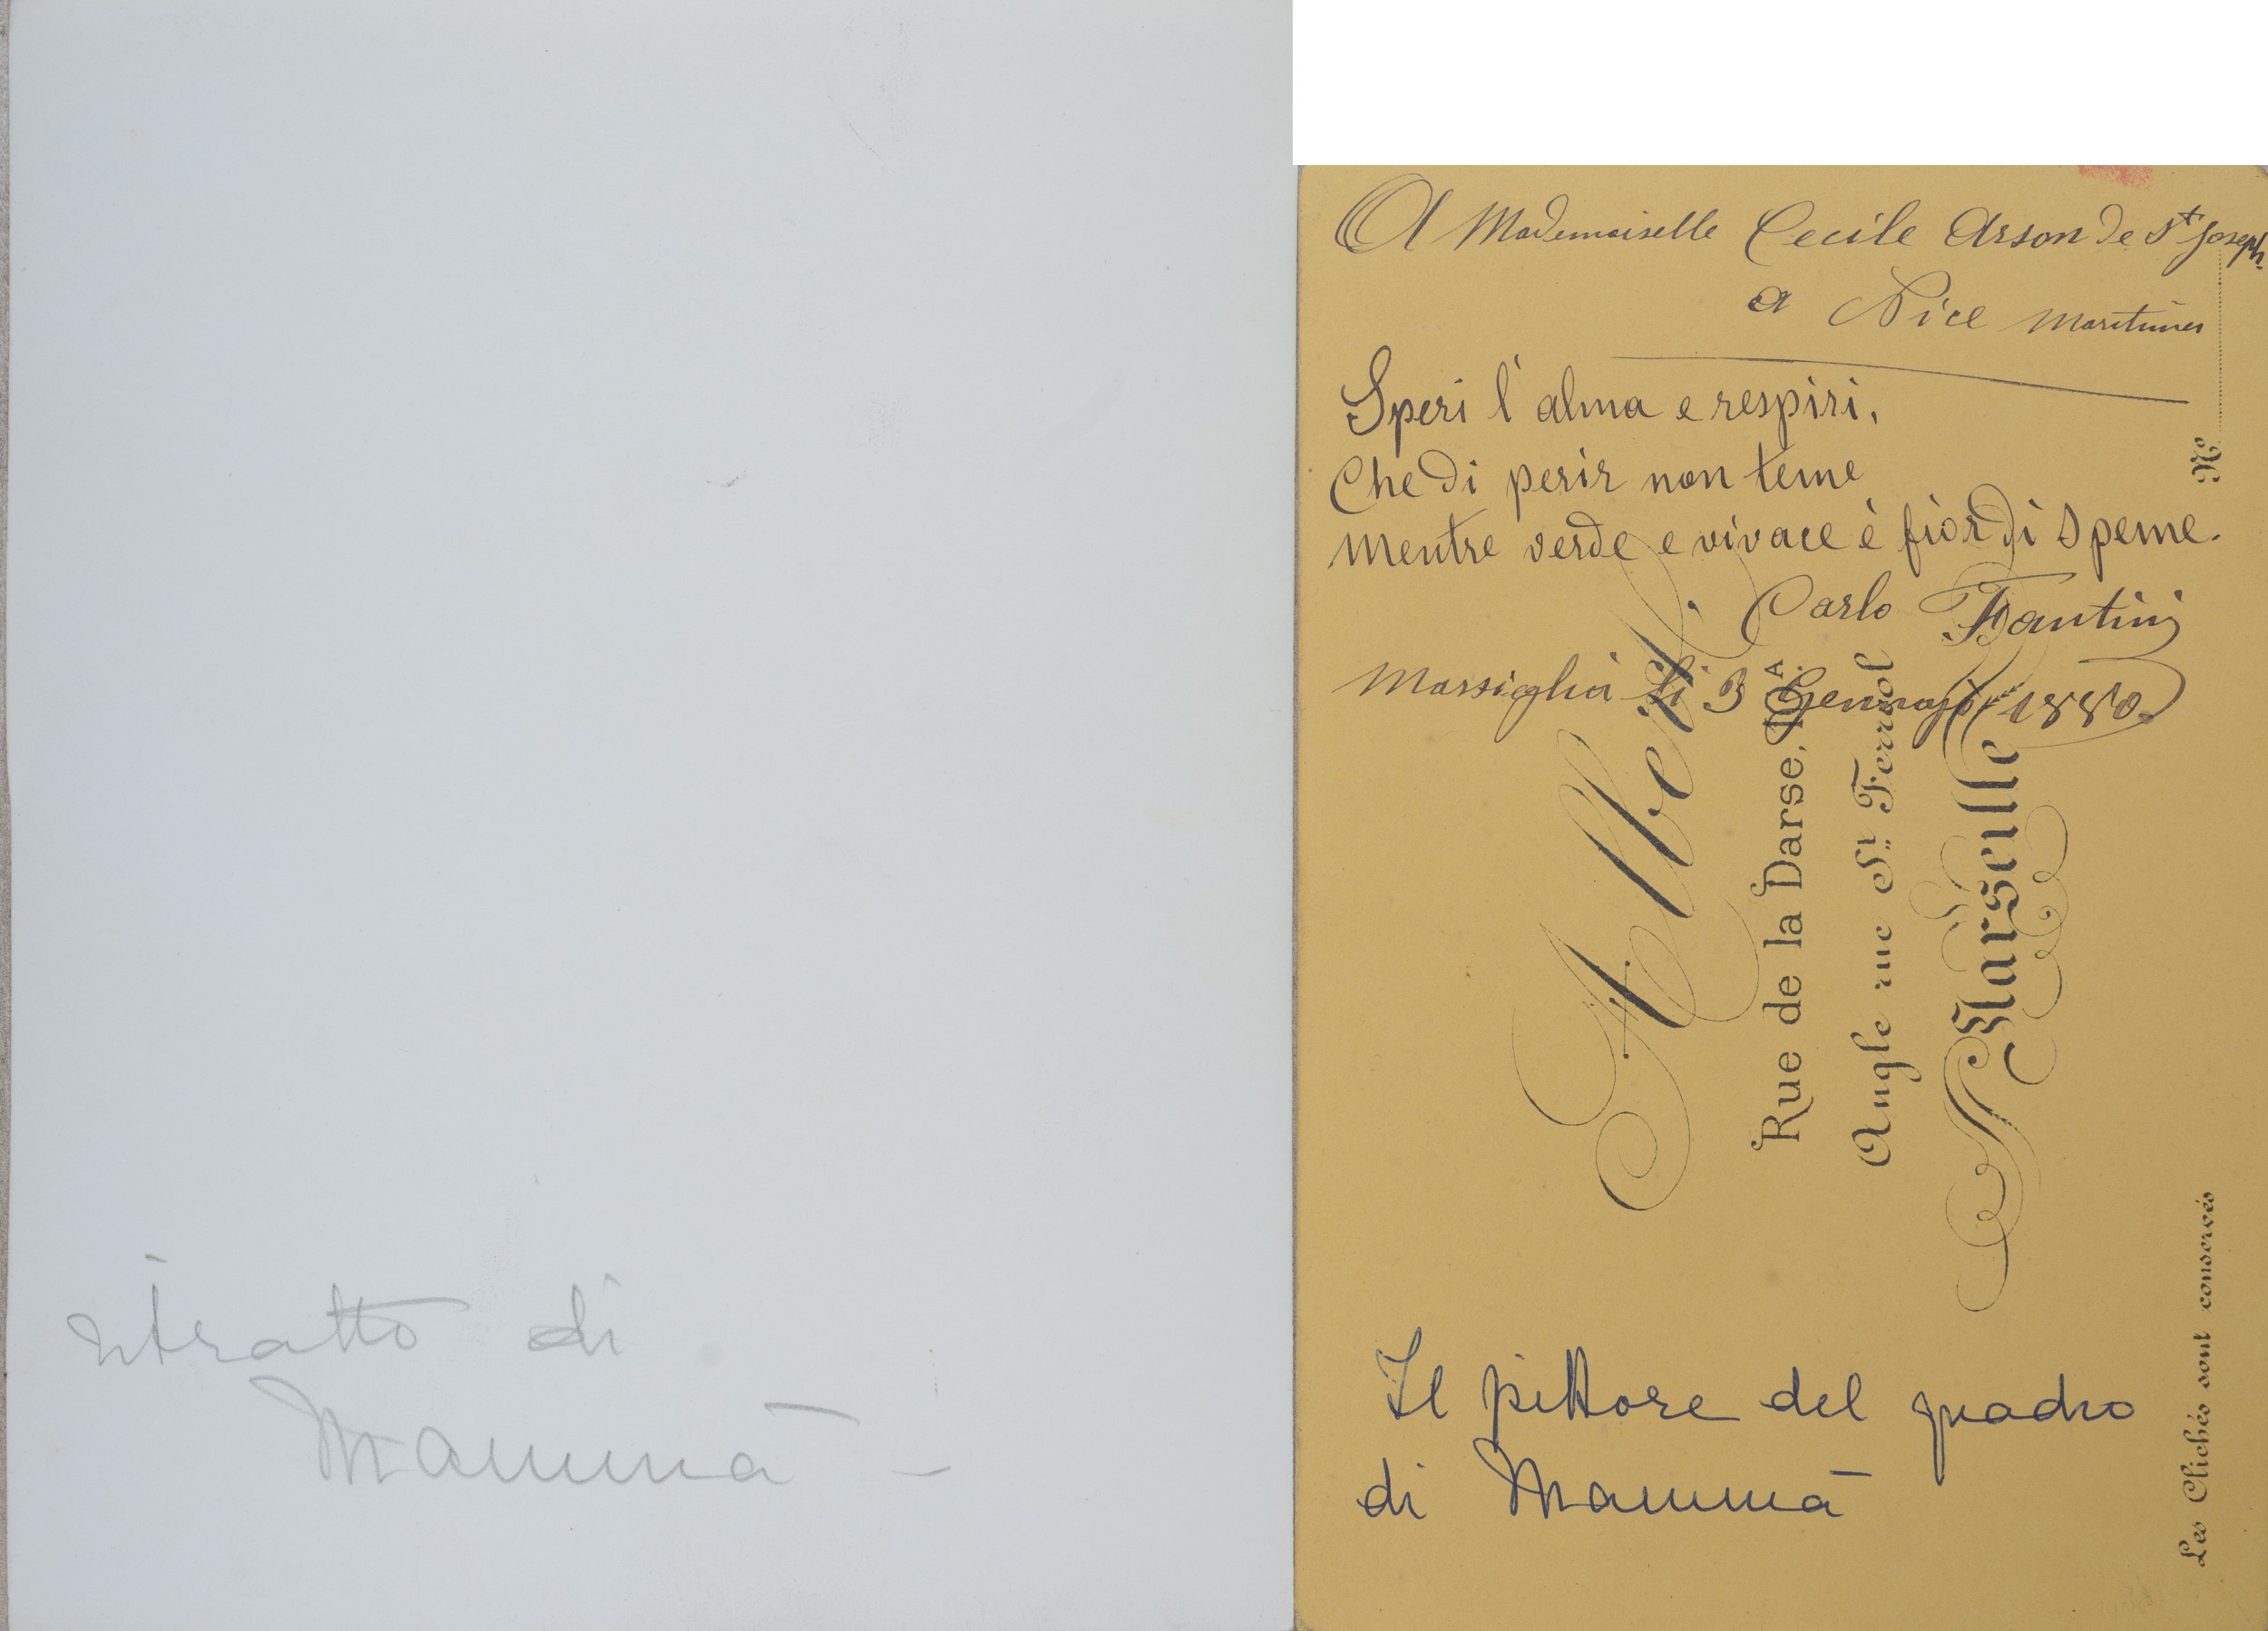 ritratto di
Mammà -
A Mademoiselle Cecile Arson de St Joseph.
a Nice Maritimes
Speri l'alma e respiri,
Che di perir non teme
Mentre verde e vivace è fior di speme.
Carlo Fantini
Marsiglia li 3 Gennajo 1880.
No
Rue de la Darse, 10A
Angle rue St. Ferréol
Marseille
Les Clichés sont conservés
Il pittore del quadro
di Mammà